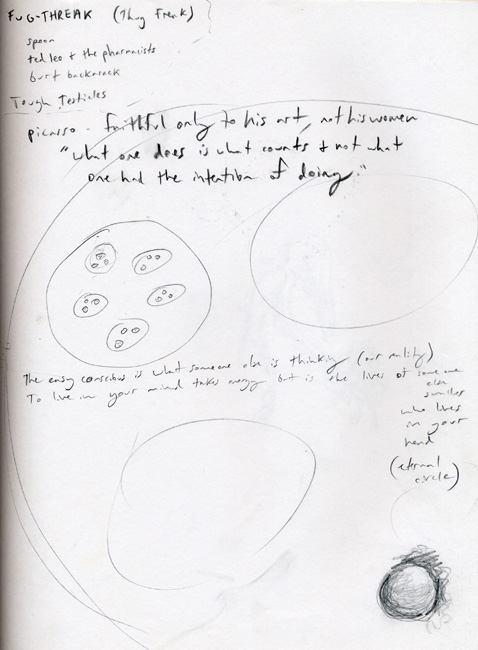 FUG-THREAK (Thug Freak)
spoon
ted leo + the pharmacists
burt backarack
Tough Testicles
picasso - faithful only to his art, not his women
"what one does is what counts & not what
one had the intention of doing."
The easy conscious is what someone else is thinking (our reality)
To live in your mind takes energy but is the lives of someone
else
smiles
who lives
in your
head
(eternal
circle)